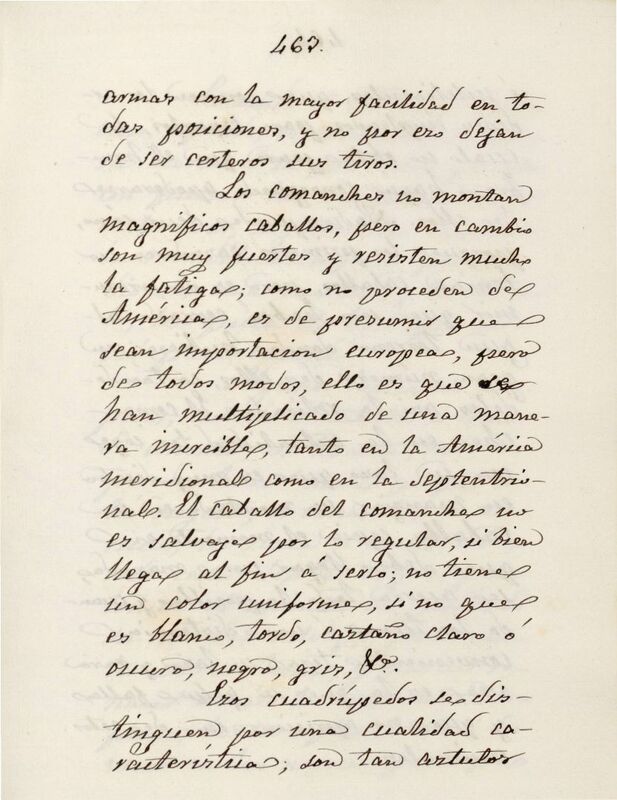 463.
armas con la mayor facilidad en to-
das posiciones, y no por eso dejan
de ser certeros sus tiros.
Los comanches no montan
magníficos caballos, pero en cambio
son muy fuertes y resisten mucho
la fatiga; como no proceden de
América, es de presumir que
sean importacion europea, pero
de todos modos, ello es que se
han multiplicado de una mane-
ra increible, tanto en la América
meridional como en la septentrio-
nal. El caballo del comanche no
es salvaje por lo regular, si bien
llega al fin á serlo; no tiene
un color uniforme, si no que
es blanco, tordo, castaño claro ó
oscuro, negro, gris, &c.
Esos cuadrúpedos se dis-
tinguen por una cualidad ca-
racterística; son tan astutos